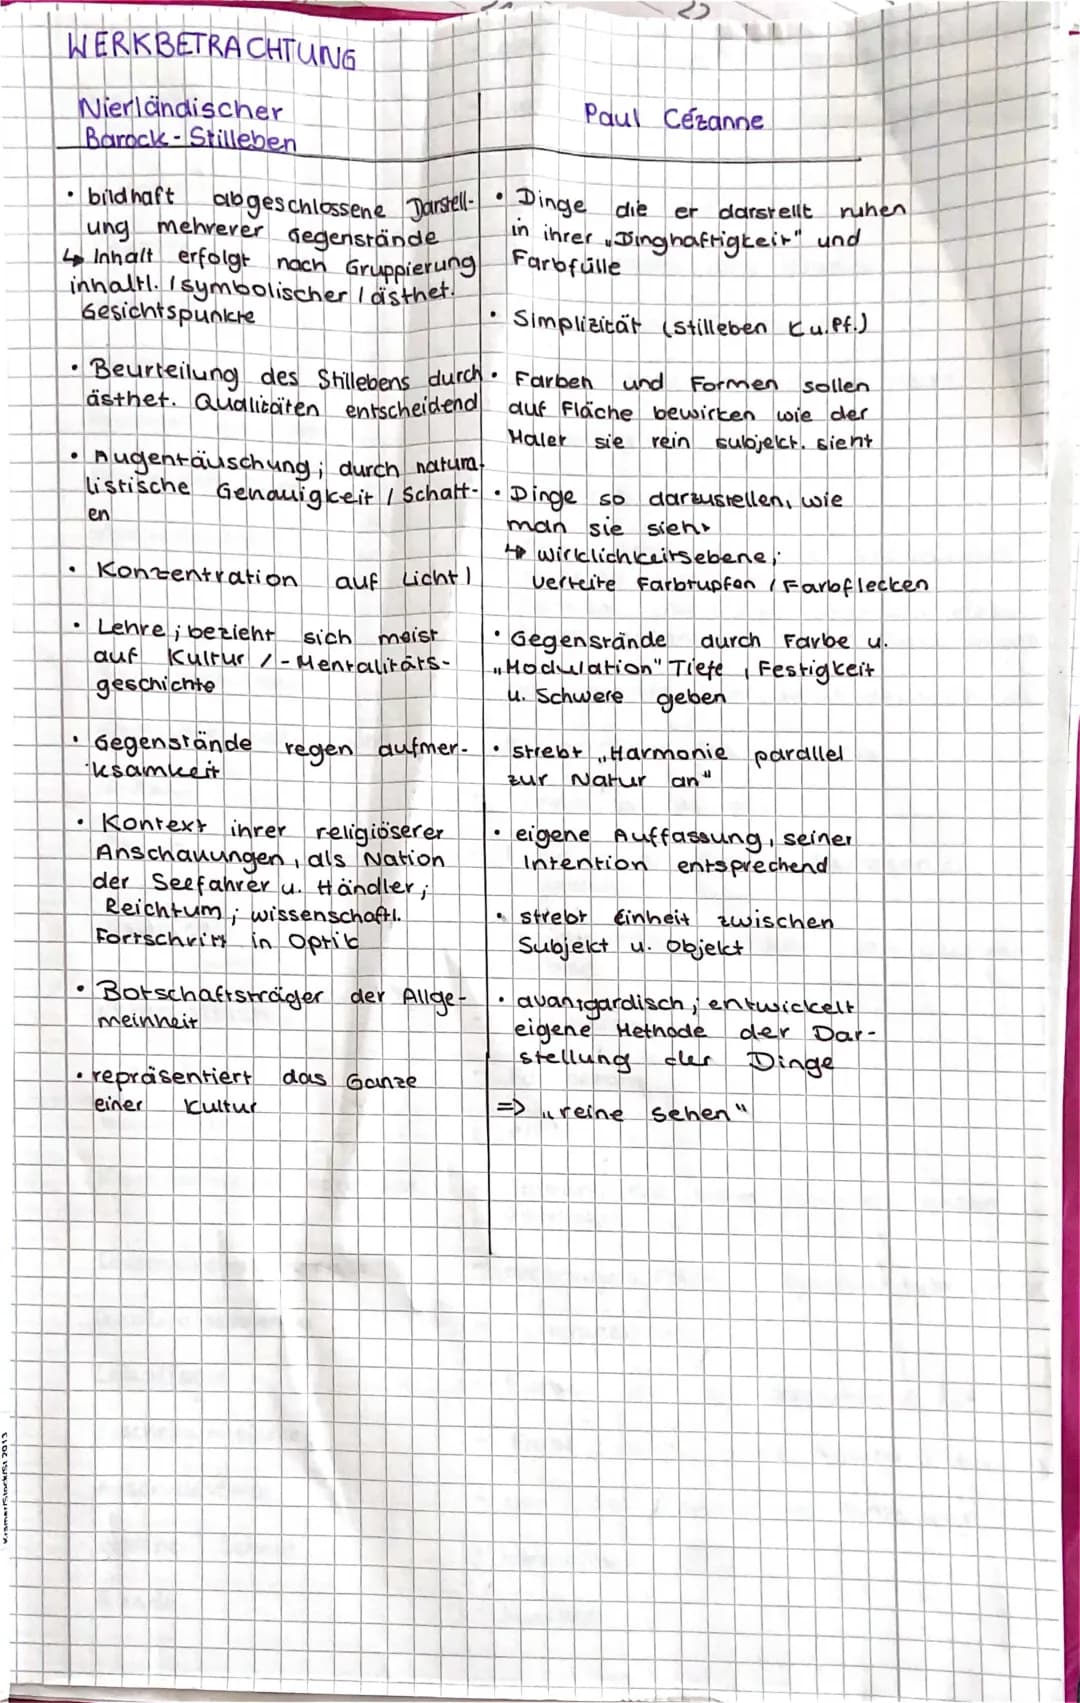 WERKBETRACHTUNG
Nierländischer
Barock-Stilleben
• bildhaft abgeschlossene Darstell-
ung mehrerer Gegenstände
↳ Inhalt erfolgt nach Gruppierung
inhaltl. / symbolischer / ästhet.
Gesichtspunkte
• Beurteilung des Stillebens durch
ästhet. Qualitäten entscheidend
• Augentäuschung; durch natura-
listische Genauigkeit / Schatt-
en
• Konzentration auf Licht!
• Lehre; bezieht sich meist
auf Kultur /-Mentalitäts-
geschichte
• Gegenstände regen aufmer-
ksamkeit
• Kontext ihrer religiöserer
Anschauungen, als Nation
der Seefahrer u. Händler;
Reichtum; wissenschaftl.
Fortschritt in Optik
• Botschaftsträger der Allge-
meinheit
• repräsentiert das Ganze
einer Kultur
Paul Cézanne
• Dinge die er darstellt ruhen
in ihrer „Dinghaftigkeit" und
Farbfülle
• Simplizität (Stilleben K.u.Pf.)
• Farben und Formen sollen
auf Fläche bewirken wie der
Maler sie rein subjekt. sieht
• Dinge so darzustellen, wie
man sie sieht
↳ wirklichkeitsebene;
verteite Farbtupfen / Farbflecken
• Gegenstände durch Farbe u.
„Modulation" Tiefe, Festigkeit
u. Schwere geben
• strebt „Harmonie parallel
zur Natur an"
• eigene Auffassung, seiner
Intention entsprechend
• strebt Einheit zwischen
Subjekt u. Objekt
• avantgardisch; entwickelt
eigene Methode der Dar-
stellung der Dinge
=> „reine sehen"